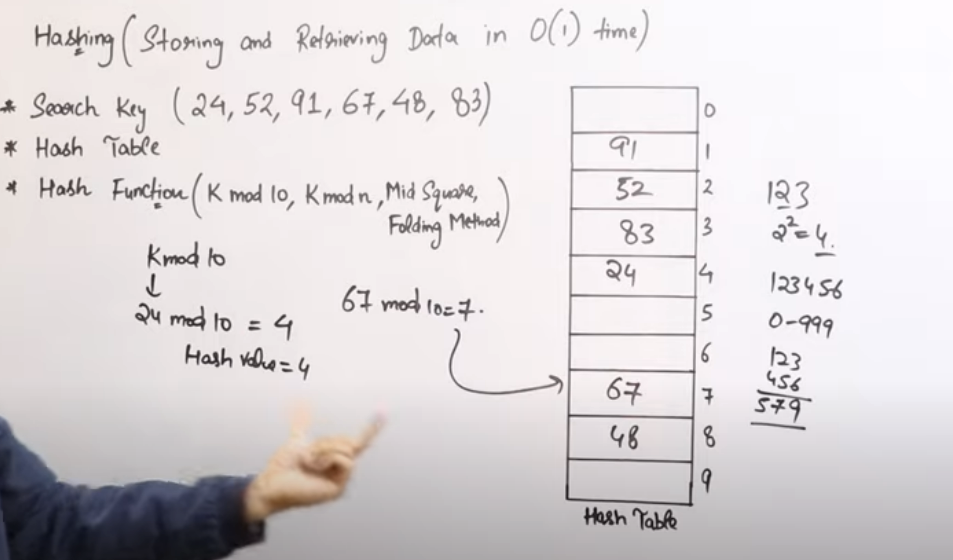 Hashing (Storing and Retrieving Data in O(1) time)
* Search Key (24, 52, 91, 67, 48, 83)
* Hash Table
* Hash Function (K mod 10, K mod n, Mid Square,
Folding Method)
K mod 10
↓
24 mod 10 = 4
Hash value = 4
67 mod 10 = 7.
0
91 1
52 2
83 3
24 4
5
6
67 7
48 8
9
Hash Table
123
2² = 4.
123456
0-999
123
456
579